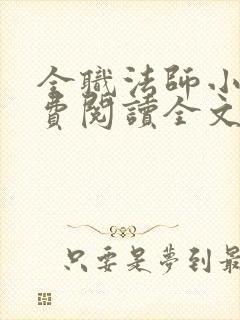 全職法師小
費閱讀全文
只要是夢到最